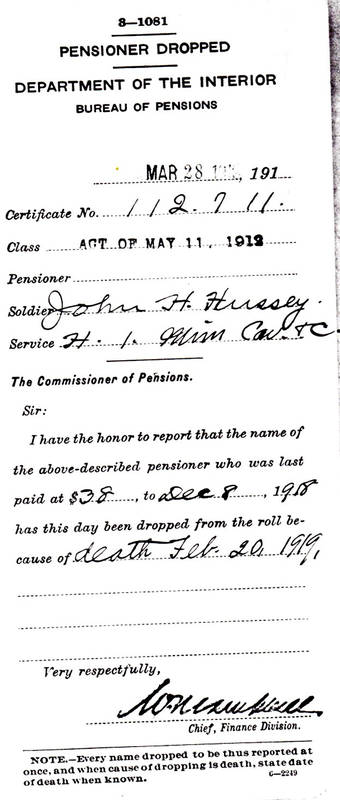 3—1081
PENSIONER DROPPED
DEPARTMENT OF THE INTERIOR
BUREAU OF PENSIONS
MAR 28 , 191
Certificate No. 112.711.
Class ACT OF MAY 11, 1912
Pensioner
Soldier John H. Hussey.
Service H. 1. Minn Cav. &C
The Commissioner of Pensions.
Sir:
I have the honor to report that the name of
the above-described pensioner who was last
paid at $38, to Dec 8, 1918
has this day been dropped from the roll be-
cause of death Feb. 20, 1919,
Very respectfully,
Chief, Finance Division.
NOTE.—Every name dropped to be thus reported at
once, and when cause of dropping is death, state date
of death when known.
6—2249